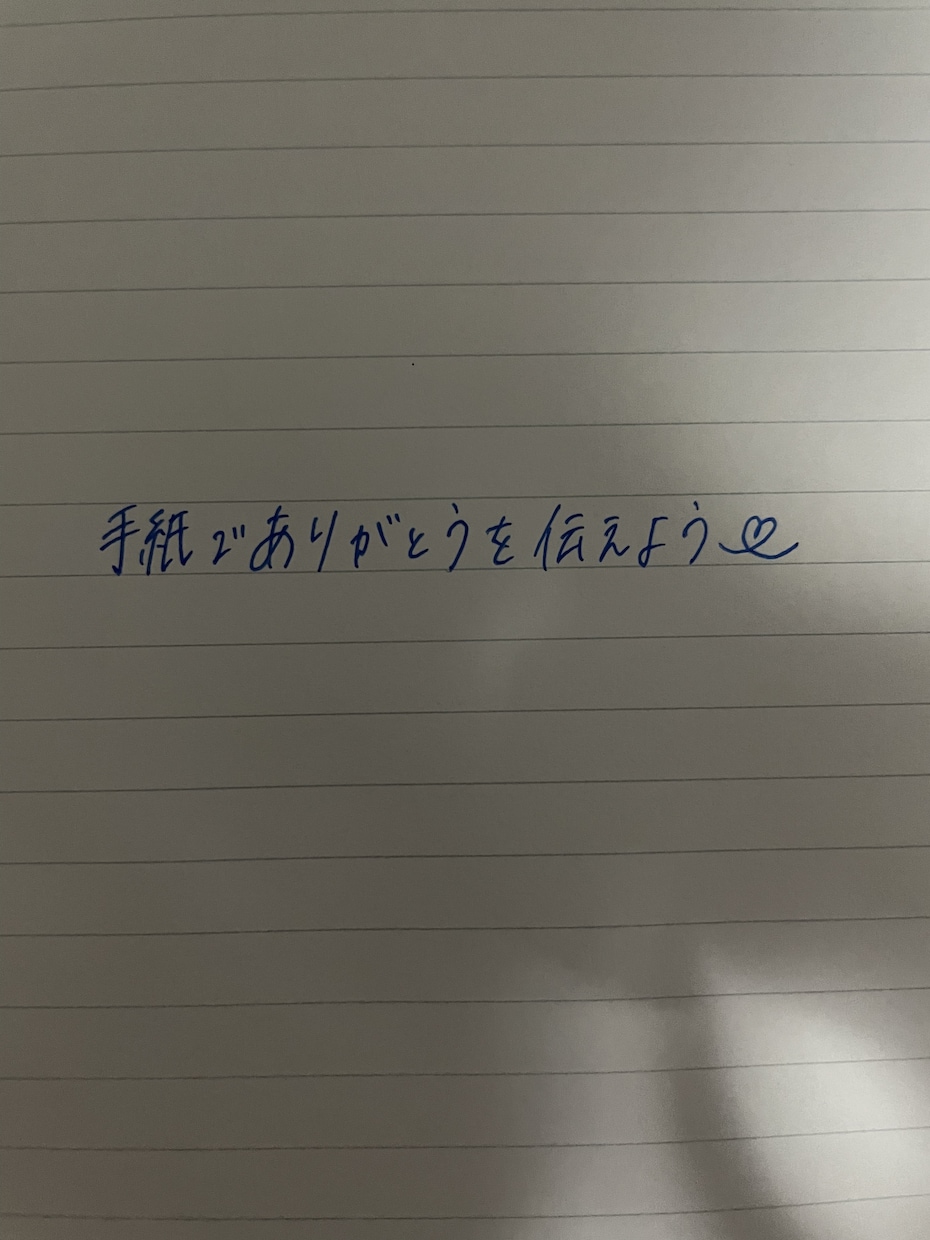 手紙でありがとうを伝えよう♡